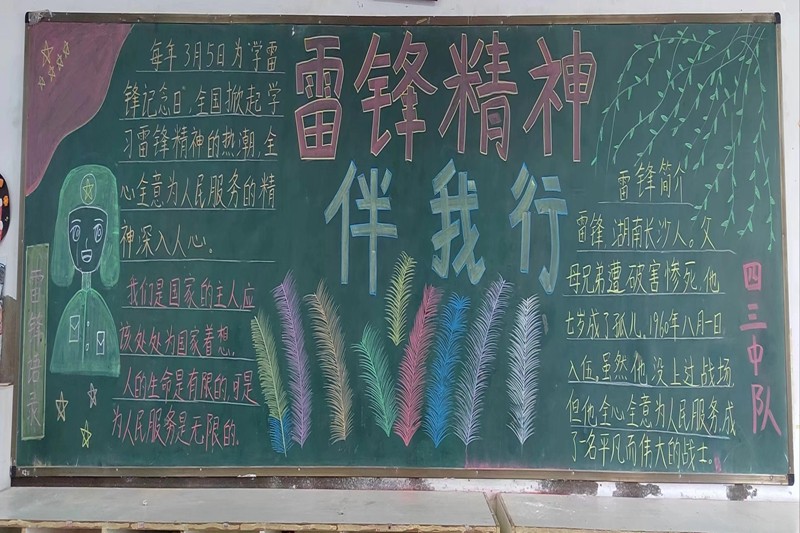 雷锋精神
伴我行
每年3月5日为"学雷
锋记念日",全国掀起学
习雷锋精神的热潮,全
心全意为人民服务的精
神深入人心。
我们是国家的主人应
该处处为国家着想。
人的生命是有限的,可是
为人民服务是无限的。
雷锋语录
雷锋简介
雷锋,湖南长沙人。父
母兄弟遭破害惨死,他
七岁成了孤儿,1960年八月一日
入伍,虽然他没上过战场,
但他全心全意为人民服务,成
了一名平凡而伟大的战士。
四三中队